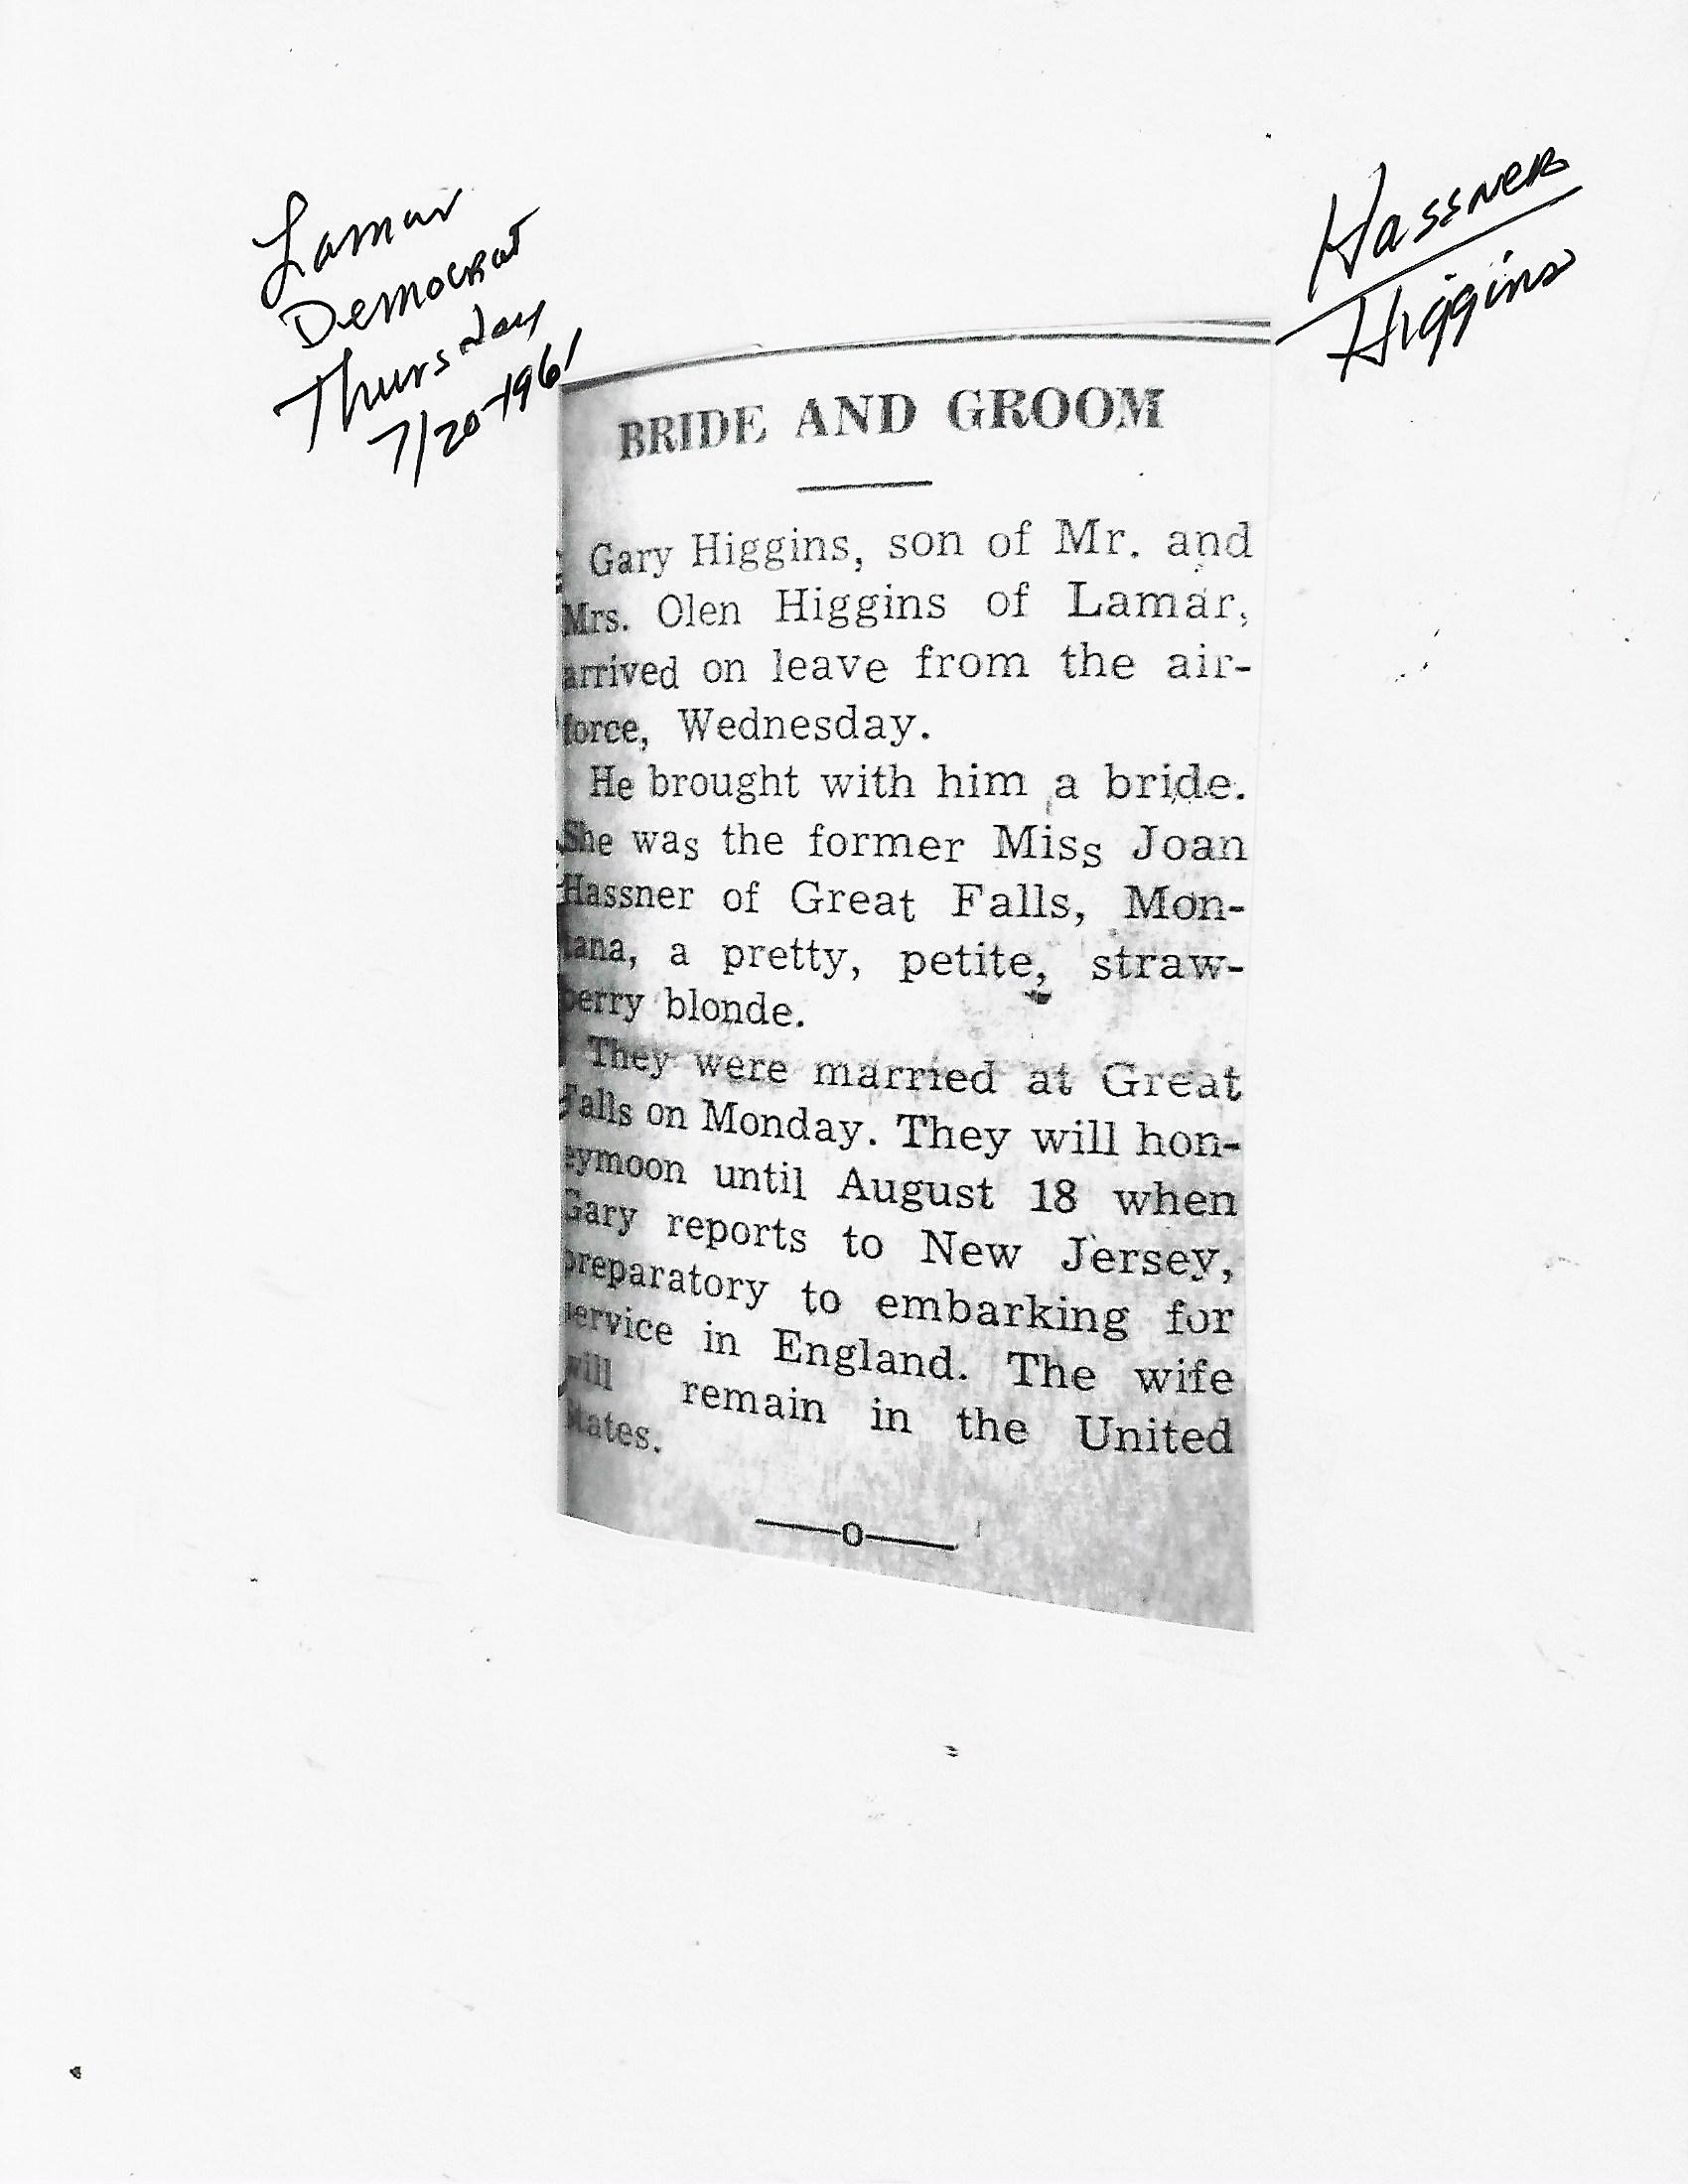 Lamar
Democrat
Thursday
7/20-1961
Hassner
Higgins
BRIDE AND GROOM
Gary Higgins, son of Mr. and
Mrs. Olen Higgins of Lamar,
arrived on leave from the air-
force, Wednesday.
He brought with him a bride.
She was the former Miss Joan
Hassner of Great Falls, Mon-
tana, a pretty, petite, straw-
berry blonde.
They were married at Great
Falls on Monday. They will hon-
eymoon until August 18 when
Gary reports to New Jersey,
preparatory to embarking for
service in England. The wife
will remain in the United
States.
—o—